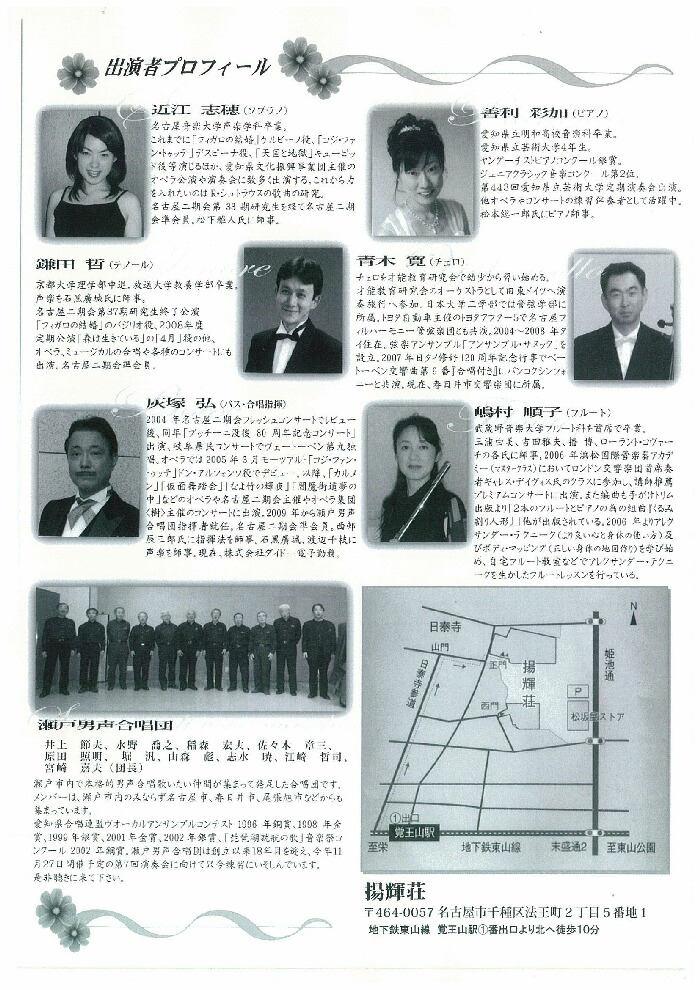 出演者プロフィール
近江 志穂（ソプラノ）
名古屋音楽大学声楽学科卒業。
これまでに「フィガロの結婚」ケルビーノ役、「コジ・ファ
ン・トゥッテ」デスピーナ役、「天国と地獄」キューピッ
ド役等演じるほか、愛知県文化振興事業団主催の
オペラ公演や演奏会に数多く出演する。これから力
を入れたいのはR・シュトラウスの歌曲の研究。
名古屋二期会第33期研究生を経て名古屋二期
会準会員。松下雅人氏に師事。
善利 彩加（ピアノ）
愛知県立明和高校音楽科卒業。
愛知県立芸術大学4年生。
ヤングーテイストピアノコンクール銀賞。
ジュニアクラシック音楽コンクール第2位。
第443回愛知県立芸術大学定期演奏会出演。
他オペラやコンサートの練習伴奏者として活躍中。
松本総一郎氏にピアノ師事。
鎌田 哲（テノール）
京都大学理学部中退。放送大学教養学部卒業。
声楽を石黒廣城氏に師事。
名古屋二期会第37期研究生終了公演
「フィガロの結婚」のバジリオ役、2008年度
定期公演「森は生きている」の「4月」役の他、
オペラ、ミュージカルの合唱や各種のコンサートにも
出演。名古屋二期会準会員。
青木 寛（チェロ）
チェロを才能教育研究会で幼少から習い始める。
才能教育研究会のオーケストラとして旧東ドイツへ演
奏旅行へ参加。日本大工学部では管弦学部に
所属。トヨタ自動車主役のトヨタアフター5で名古屋フ
ィルハーモニー管弦楽団とも共演。2004〜2008年タ
イ在住。弦楽アンサンブル「アンサンブル・サヌック」を
設立。2007年日タイ修好120周年記念行事でベー
トーベン交響曲第9番『合唱付き』に、バンコクシンフォ
ニーと共演。現在、春日井市交響楽団に所属。
灰塚 弘（バス・合唱指揮）
2004年名古屋二期会フレッシュコンサートでレビュー
後、同年「プッチーニ没後80周年記念コンサート」
出演、岐阜県民コンサートでヴェートーベン第九独
唱。オペラでは2005年3月モーツアルト「コジ・ファン・
トゥッテ」ドン・アルフォンソ役でデビュー。以降、「カルメ
ン」「仮面舞踏会」「なよ竹の輝夜」「閻魔街道夢の
中」などのオペラや名古屋二期会主催やオペラ集団
（樹）主催のコンサートに出演。2009年から瀬戸男声
合唱団指揮者就任。名古屋二期会準会員。西部
辰三郎氏に指揮法を師事。石黒廣城、渡辺千枝に
声楽を師事。現在、株式会社ダイドー電子勤務。
嶋村 順子（フルート）
武蔵野音楽大学フルート科を首席で卒業。
三浦由美、吉田雅夫、播博、ローランド・コヴァー
チの各氏に師事。2006年浜松国際管楽器アカデ
ミー（マスタークラス）においてロンドン交響楽団首席奏
者ギャレス・デイヴィス氏のクラスに参加し、講師推薦
プレミアムコンサートに出演。また編曲も手がけトリム
出版より「2本のフルートとピアノの為の組曲『くるみ
割り人形』」他が出版されている。2006年よりアレク
サンダー・テクニーク（より良い心と身体の使い方）及
びボディ・マッピング（正しい身体の地図作り）を学び始
め、自宅フルート教室などでアレクサンダー・テクニ
ークを生かしたフルートレッスンを行っている。
瀬戸男声合唱団
井上 節夫、水野 喬之、稲森 宏夫、佐々木 章三、
原田 照明、 堀 汎、山森 彪、志水 暁、江崎 哲司、
宮崎 嘉夫（団長）
瀬戸市内で本格的男声合唱歌いたい仲間が集まって発足した合唱団です。
メンバーは、瀬戸市内のみならず名古屋市、春日井市、尾張旭市などからも
集まっています。
愛知県合唱連盟ヴォーカルアンサンブルコンテスト1996年銅賞、1998年金
賞、1999年銀賞、2001年金賞、2002年銀賞、「琵琶湖就航の歌」音楽祭コ
ンクール2002年銅賞。瀬戸男声合唱団は創立以来18年目を迎え、今年11
月27日開催予定の第7回演奏会に向けて只今練習にいそしんでいます。
是非聴きに来て下さい。
N
日泰寺
山門
正門
揚輝荘
西門
姫池通
P
松坂屋ストア
日泰寺参道
①出口
覚王山駅
至栄
地下鉄東山線
末盛通2
至東山公園
揚輝荘
〒464-0057 名古屋市千種区法王町2丁目5番地1
地下鉄東山線 覚王山駅①番出口より北へ徒歩10分